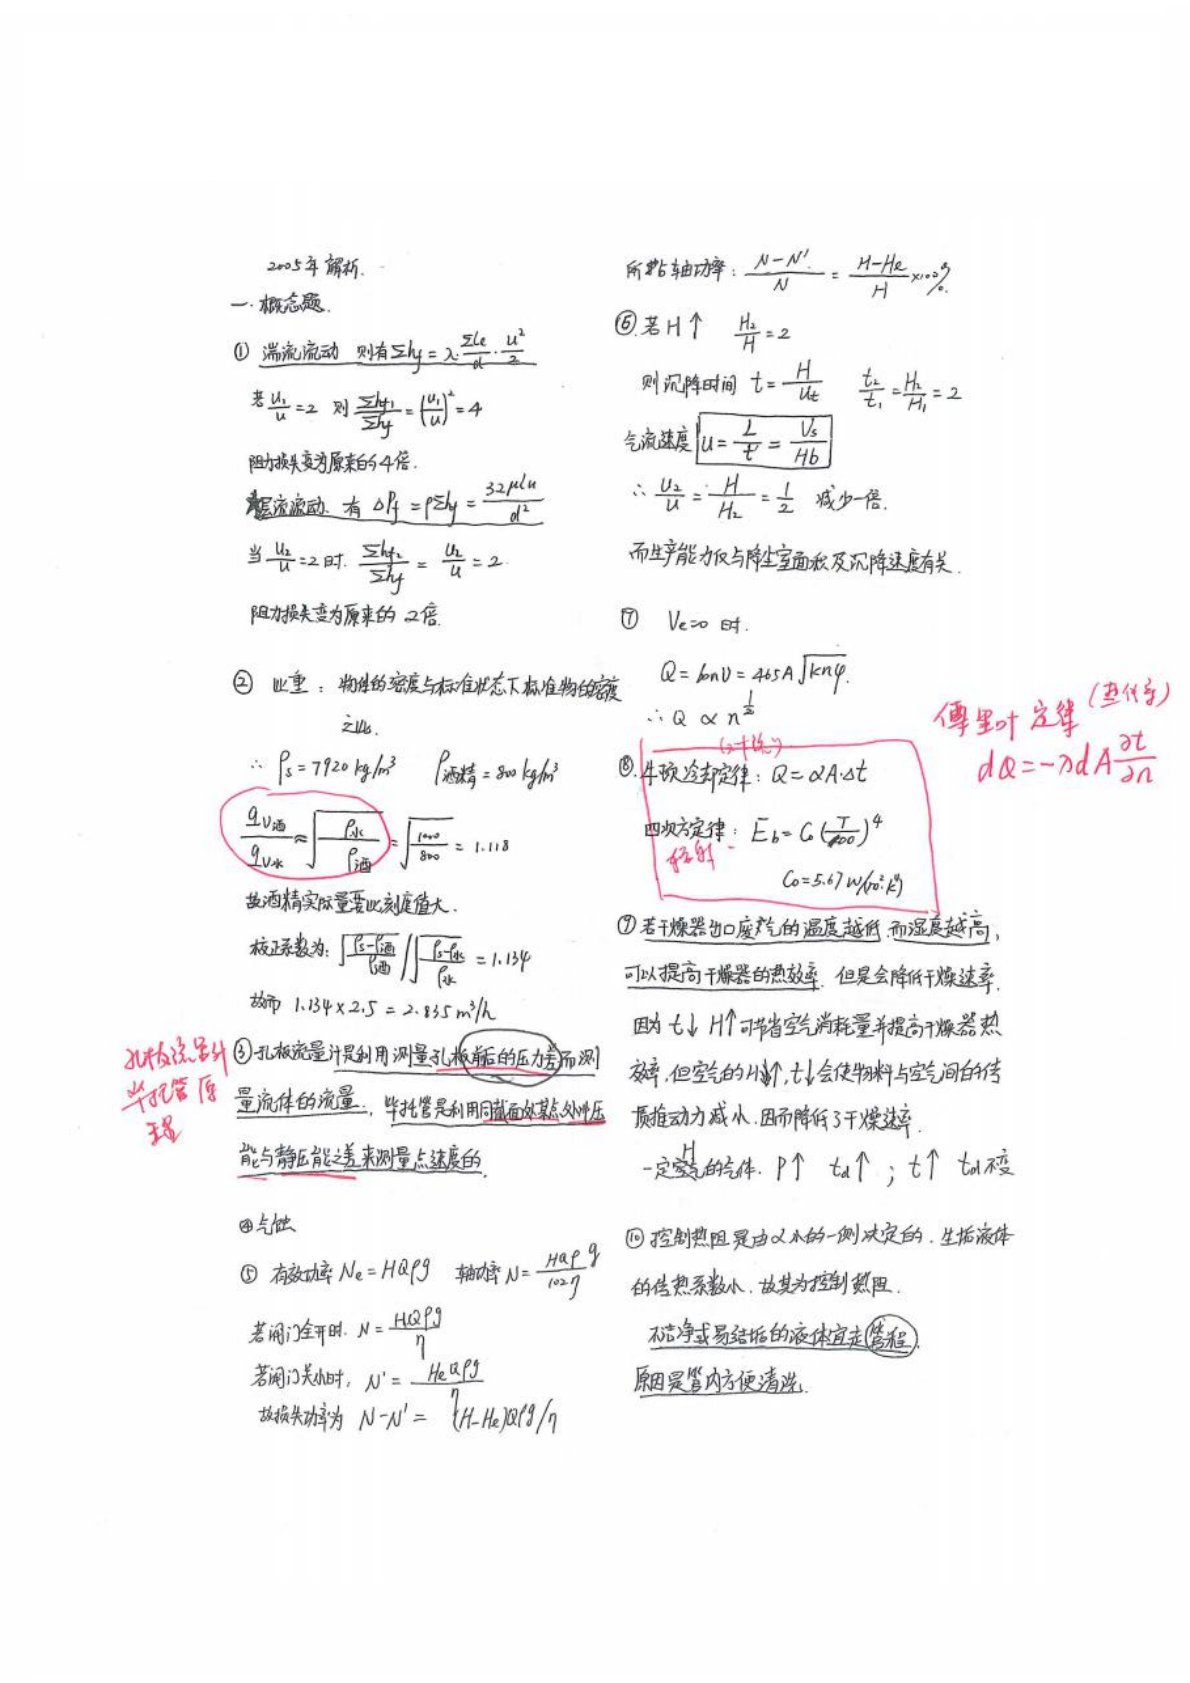 2005年解析.
一.概念题.
① 湍流流动 则有Σhf = λ·Σle/d·u²/2
若 u₁/u = 2 则 Σhf₁/Σhf = (u₁/u)² = 4
阻力损失变为原来的4倍.
层流流动. 有 ΔPf = ρΣhf = 32μlu/d²
当 u₂/u = 2时. Σhf₂/Σhf = u₂/u = 2
阻力损失变为原来的 2倍.
② 比重: 物体的密度与标准状态下标准物的密度
之比.
∴ ρs = 7920 kg/m³ ρ酒精 = 800 kg/m³
qv酒/qv水 ≈ √(ρ水/ρ酒) = √(1000/800) = 1.118
故酒精实际量要比刻度值大.
校正系数为: √((ρs-ρ酒)/ρ酒) // √((ρs-ρ水)/ρ水) = 1.134
故而 1.134×2.5 = 2.835 m³/h
孔板流量计
毕托管 原
理
③ 孔板流量计是利用测量孔板前后的压力差而测
量流体的流量., 毕托管是利用同截面处某点处冲压
能与静压能之差来测量点速度的.
④ 气蚀
⑤ 有效功率 Ne = HQρg 轴功率 N = HQρ/102η g
若阀门全开时. N = HQρg/η
若阀门关小时, N' = HeQρg/η
故损失功率为 N-N' = (H-He)Qρg/η
所占轴功率: (N-N')/N = (H-He)/H ×100%.
⑥ 若 H↑ H₂/H = 2
则沉降时间 t = H/ut t₂/t₁ = H₂/H₁ = 2
气流速度 u = L/t = Vs/Hb
∴ u₂/u = H/H₂ = 1/2 减少一倍.
而生产能力仅与降尘室面积及沉降速度有关.
⑦ Ve=0 时.
Q = 60nV = 465A√(knφ).
∴ Q ∝ n^(1/2)
(对流)
⑧. 牛顿冷却定律: Q = αA·Δt
四次方定律: Eb = C₀(T/100)⁴
辐射.
C₀ = 5.67 W/(m²·k⁴)
傅里叶定律 (热传导)
dQ = -λdA ∂t/∂n
⑨ 若干燥器出口废气的温度越低 而湿度越高,
可以提高干燥器的热效率. 但是会降低干燥速率.
因为 t↓ H↑ 可节省空气消耗量并提高干燥器热
效率, 但空气的H↑, t↓会使物料与空气间的传
质推动力减小. 因而降低了干燥速率.
一定H的气体. P↑ td↑ ; t↑ td不变
⑩ 控制热阻是由α小的一侧决定的. 生垢液体
的传热系数小. 故其为控制热阻.
不洁净或易结垢的液体宜走管程.
原因是管内方便清洗.